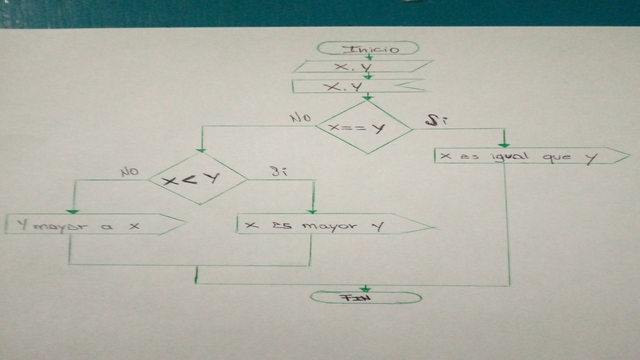 Inicio
X. Y
X. Y
No
Si
X == Y
X es igual que Y
No
Si
X < Y
Y mayor a X
X es mayor Y
FIN